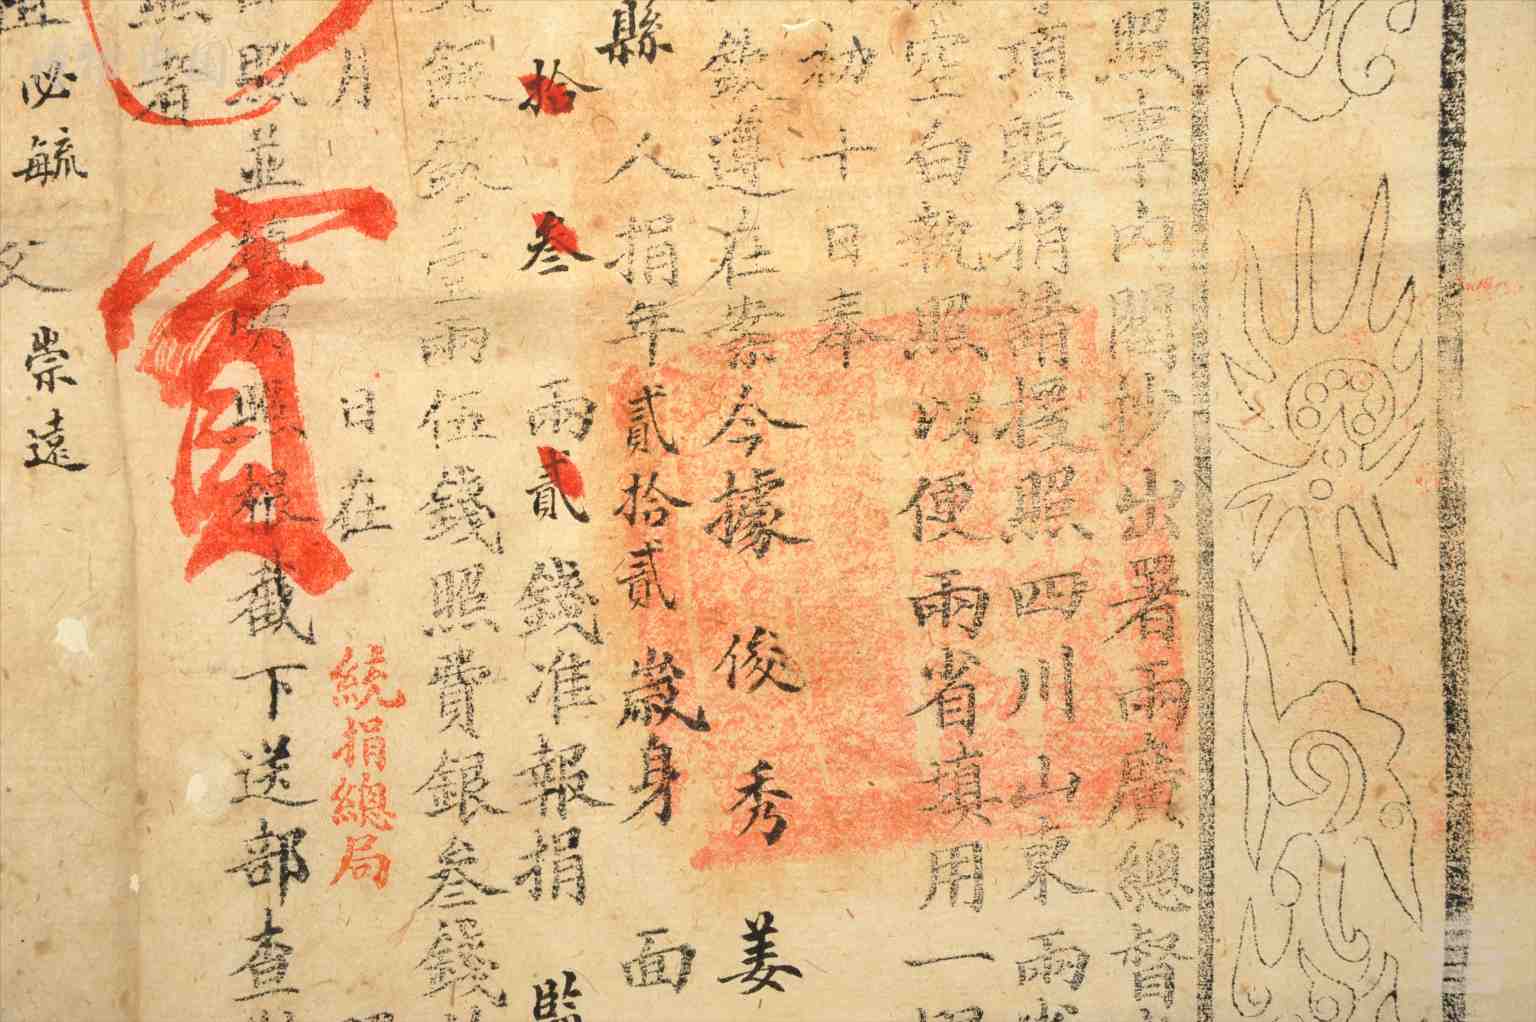 照事內閣抄出署兩廣總督
項賬捐請援照四川山東兩省
空白執照以便兩省填用一
初十日奉
欽遵在案今據俊秀姜
縣人捐年貳拾貳歲身面
拾叁兩貳錢准報捐監
銀叁壹兩伍錢照費銀叁錢
月日在
統捐總局
照並照根截下送部查
實
者
必毓父崇遠